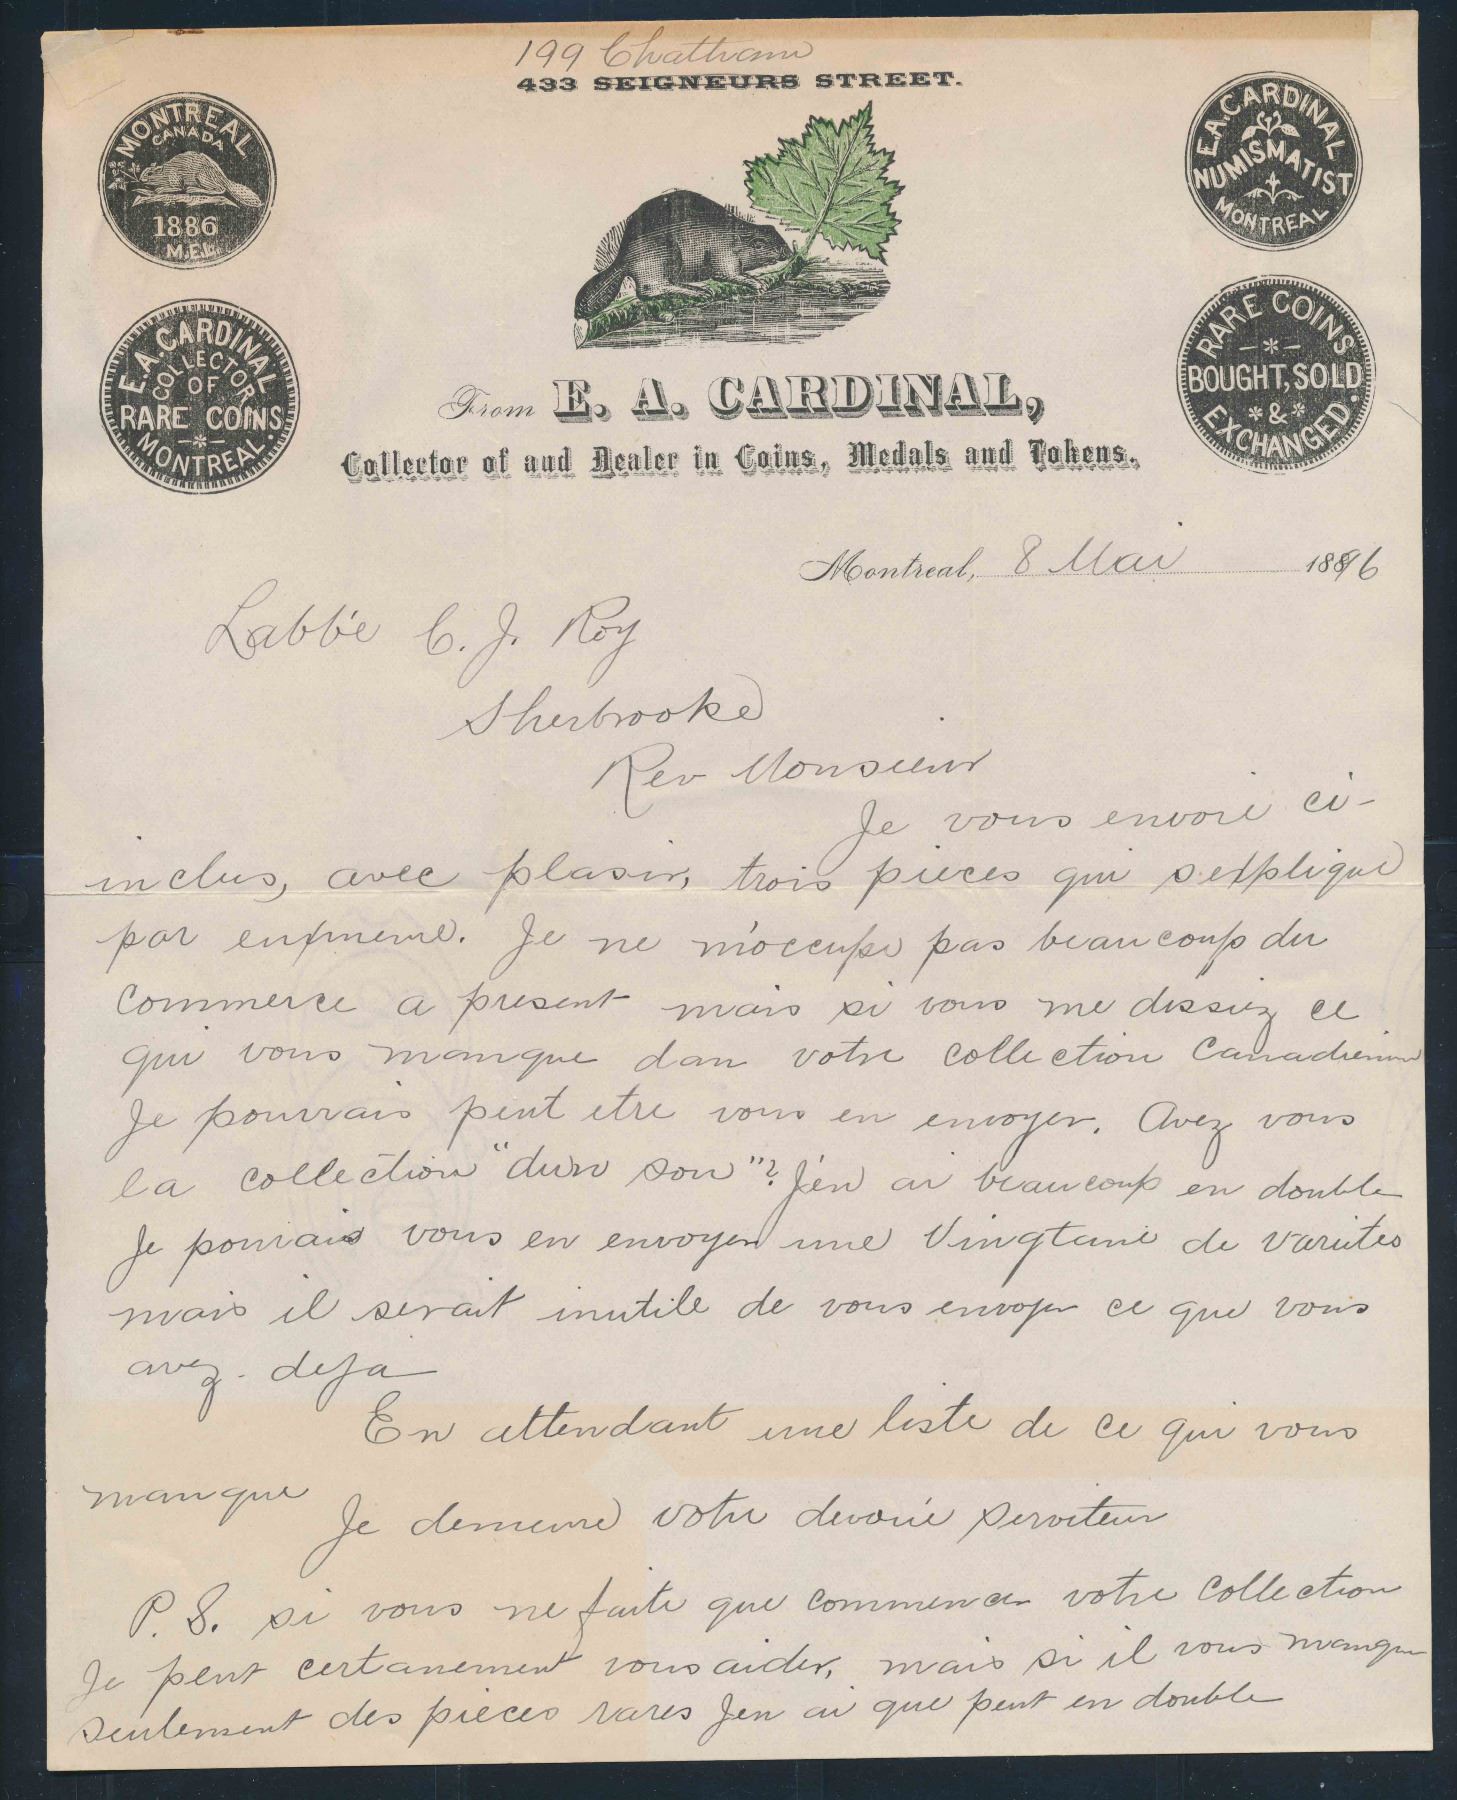 199 Chattham
433 SEIGNEURS STREET.
MONTREAL
CANADA
1886
M.E.L.
E.A. CARDINAL
NUMISMATIST
MONTREAL
E.A. CARDINAL
COLLECTOR
OF
RARE COINS
MONTREAL.
RARE COINS
BOUGHT, SOLD
&
EXCHANGED.
From E. A. CARDINAL,
Collector of and Dealer in Coins, Medals and Tokens.
Montreal, 8 Mai 1896
Labbé C. J. Roy
Sherbrooke
Rev Monsieur
Je vous envoie ci-
inclus, avec plasir, trois pieces qui s'explique
par euxmeme. Je ne m'occupe pas beaucoup du
commerce a present mais si vous me dissiez ce
qui vous manque dan votre collection Canadienne
Je pourrais peut etre vous en envoyer. Avez vous
la collection "dun sou"? J'en ai beaucoup en double
Je pourais vous en envoyer une Vingtane de varietes
mais il serait inutile de vous envoyer ce que vous
avez. deja
En attendant une liste de ce qui vous
manque
Je demeure votre devoué serviteur
P. S. si vous ne faite que commencer votre collection
Je peut certanement vous aider, mais si il vous manque
seulement des pieces rares Jen ai que peut en double